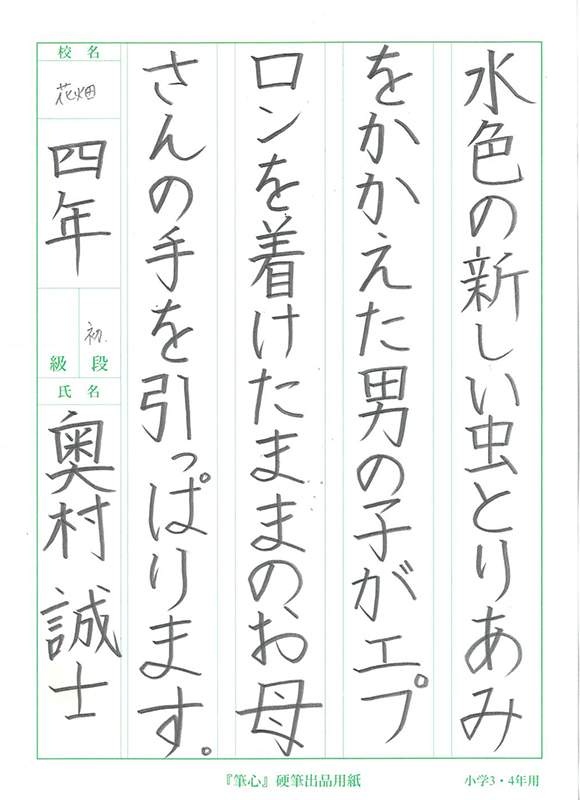 水色の新しい虫とりあみ
をかかえた男の子がエプ
ロンを着けたままのお母
さんの手を引っぱります。
校名
花畑
四年
初
段
級
氏名
奥村 誠士
『筆心』硬筆出品用紙
小学3・4年用